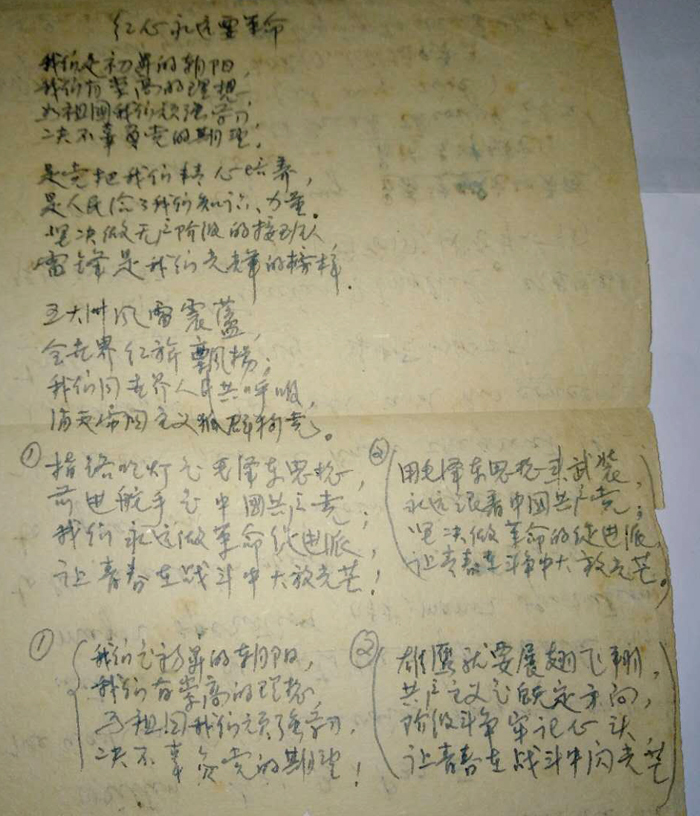 红心永远要革命
我们是初昇的朝阳,
我们有崇高的理想,
为祖国我们顽强学习,
决不辜负党的期望!
是党把我们精心培养,
是人民给了我们知识、力量。
坚决做无产阶级的接班人
雷锋是我们光辉的榜样.
五大洲风雷震盪,
全世界红旗飘扬;
我们同世界人民共呼吸,
消灭帝国主义狐群狗党。
① 指路明灯是毛泽东思想,
前进航手是中國共产党,
我们永远做革命促进派,
让青春在战斗中大放光芒!
② 用毛泽东思想来武装,
永远跟着中國共产党;
坚决做革命的促进派,
让青春在斗争中大放光芒。
① 我们是初昇的朝阳,
我们有崇高的理想,
为祖国我们顽强学习,
决不辜负党的期望!
② 雄鹰就要展翅飞翔,
共产主义是既定方向,
阶级斗争牢记心头,
让青春在战斗中闪光芒